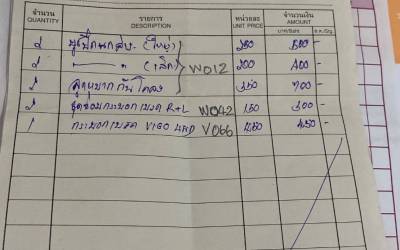 จำนวน รายการ หน่วยละ จำนวนเงิน
QUANTITY DESCRIPTION UNIT PRICE AMOUNT
2 (ใหญ่) 250 500 -
2 (เล็ก) W012 200 400 -
2 ลูกหมากกันโคลง 350 700 -
2 ชุดซ่อมกระบอกเบรค R+L W042 150 300 -
1 กระบอกเบรค VIGO 4WD V066 450 450 -